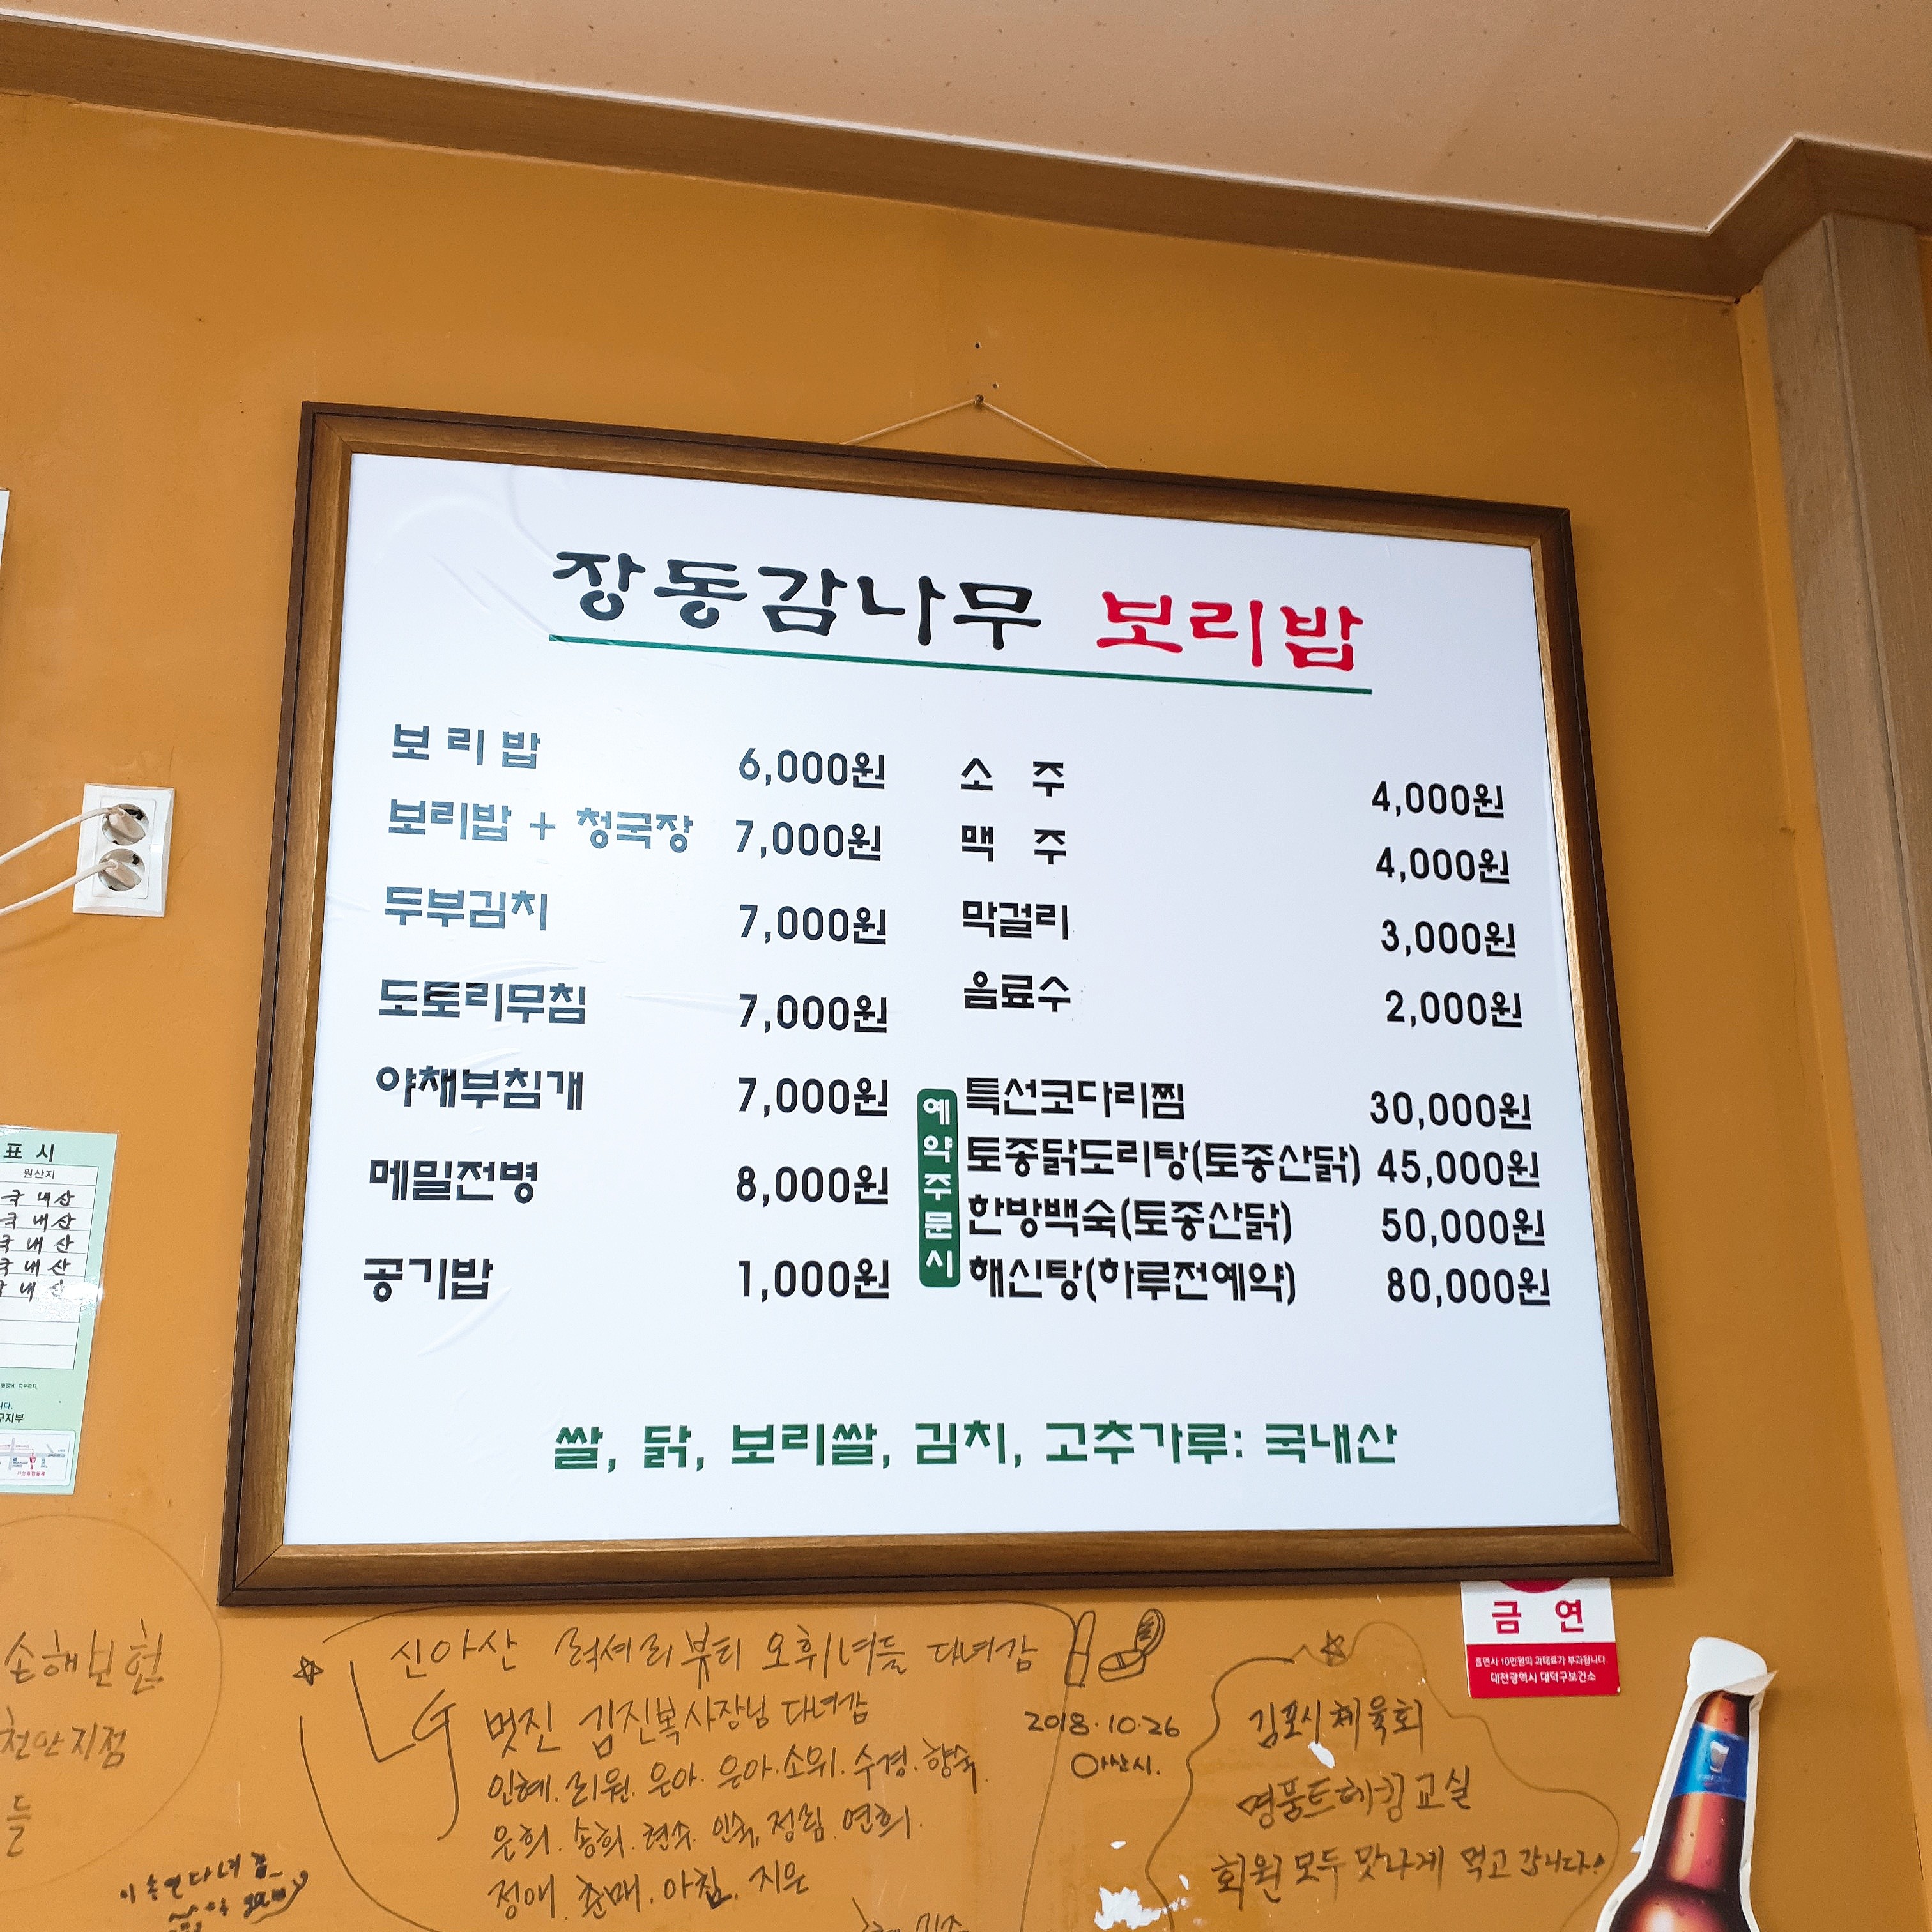 장동감나무 보리밥
보리밥 6,000원
보리밥 + 청국장 7,000원
두부김치 7,000원
도토리무침 7,000원
야채부침개 7,000원
메밀전병 8,000원
공기밥 1,000원
소주 4,000원
맥주 4,000원
막걸리 3,000원
음료수 2,000원
예약주문시
특선코다리찜 30,000원
토종닭도리탕(토종산닭) 45,000원
한방백숙(토종산닭) 50,000원
해신탕(하루전예약) 80,000원
쌀, 닭, 보리쌀, 김치, 고추가루: 국내산
표시
원산지
국내산
국내산
국내산
국내산
국내산
구지부
금연
흡연시 10만원의 과태료가 부과됩니다.
대전광역시 대덕구보건소
손해보험
천안지점
들
신아산 럭셔리뷰티 오휘녀들 다녀감
멋진 김진복사장님 다녀감
인혜. 리원. 은아. 은아. 소위. 수경. 향숙.
은희. 송희. 현수. 인숙, 정림. 연희.
정애. 춘매. 아침. 지은
2018.10.26
아산시.
김포시체육회
명품트레킹교실
회원 모두 맛나게 먹고 갑니다!